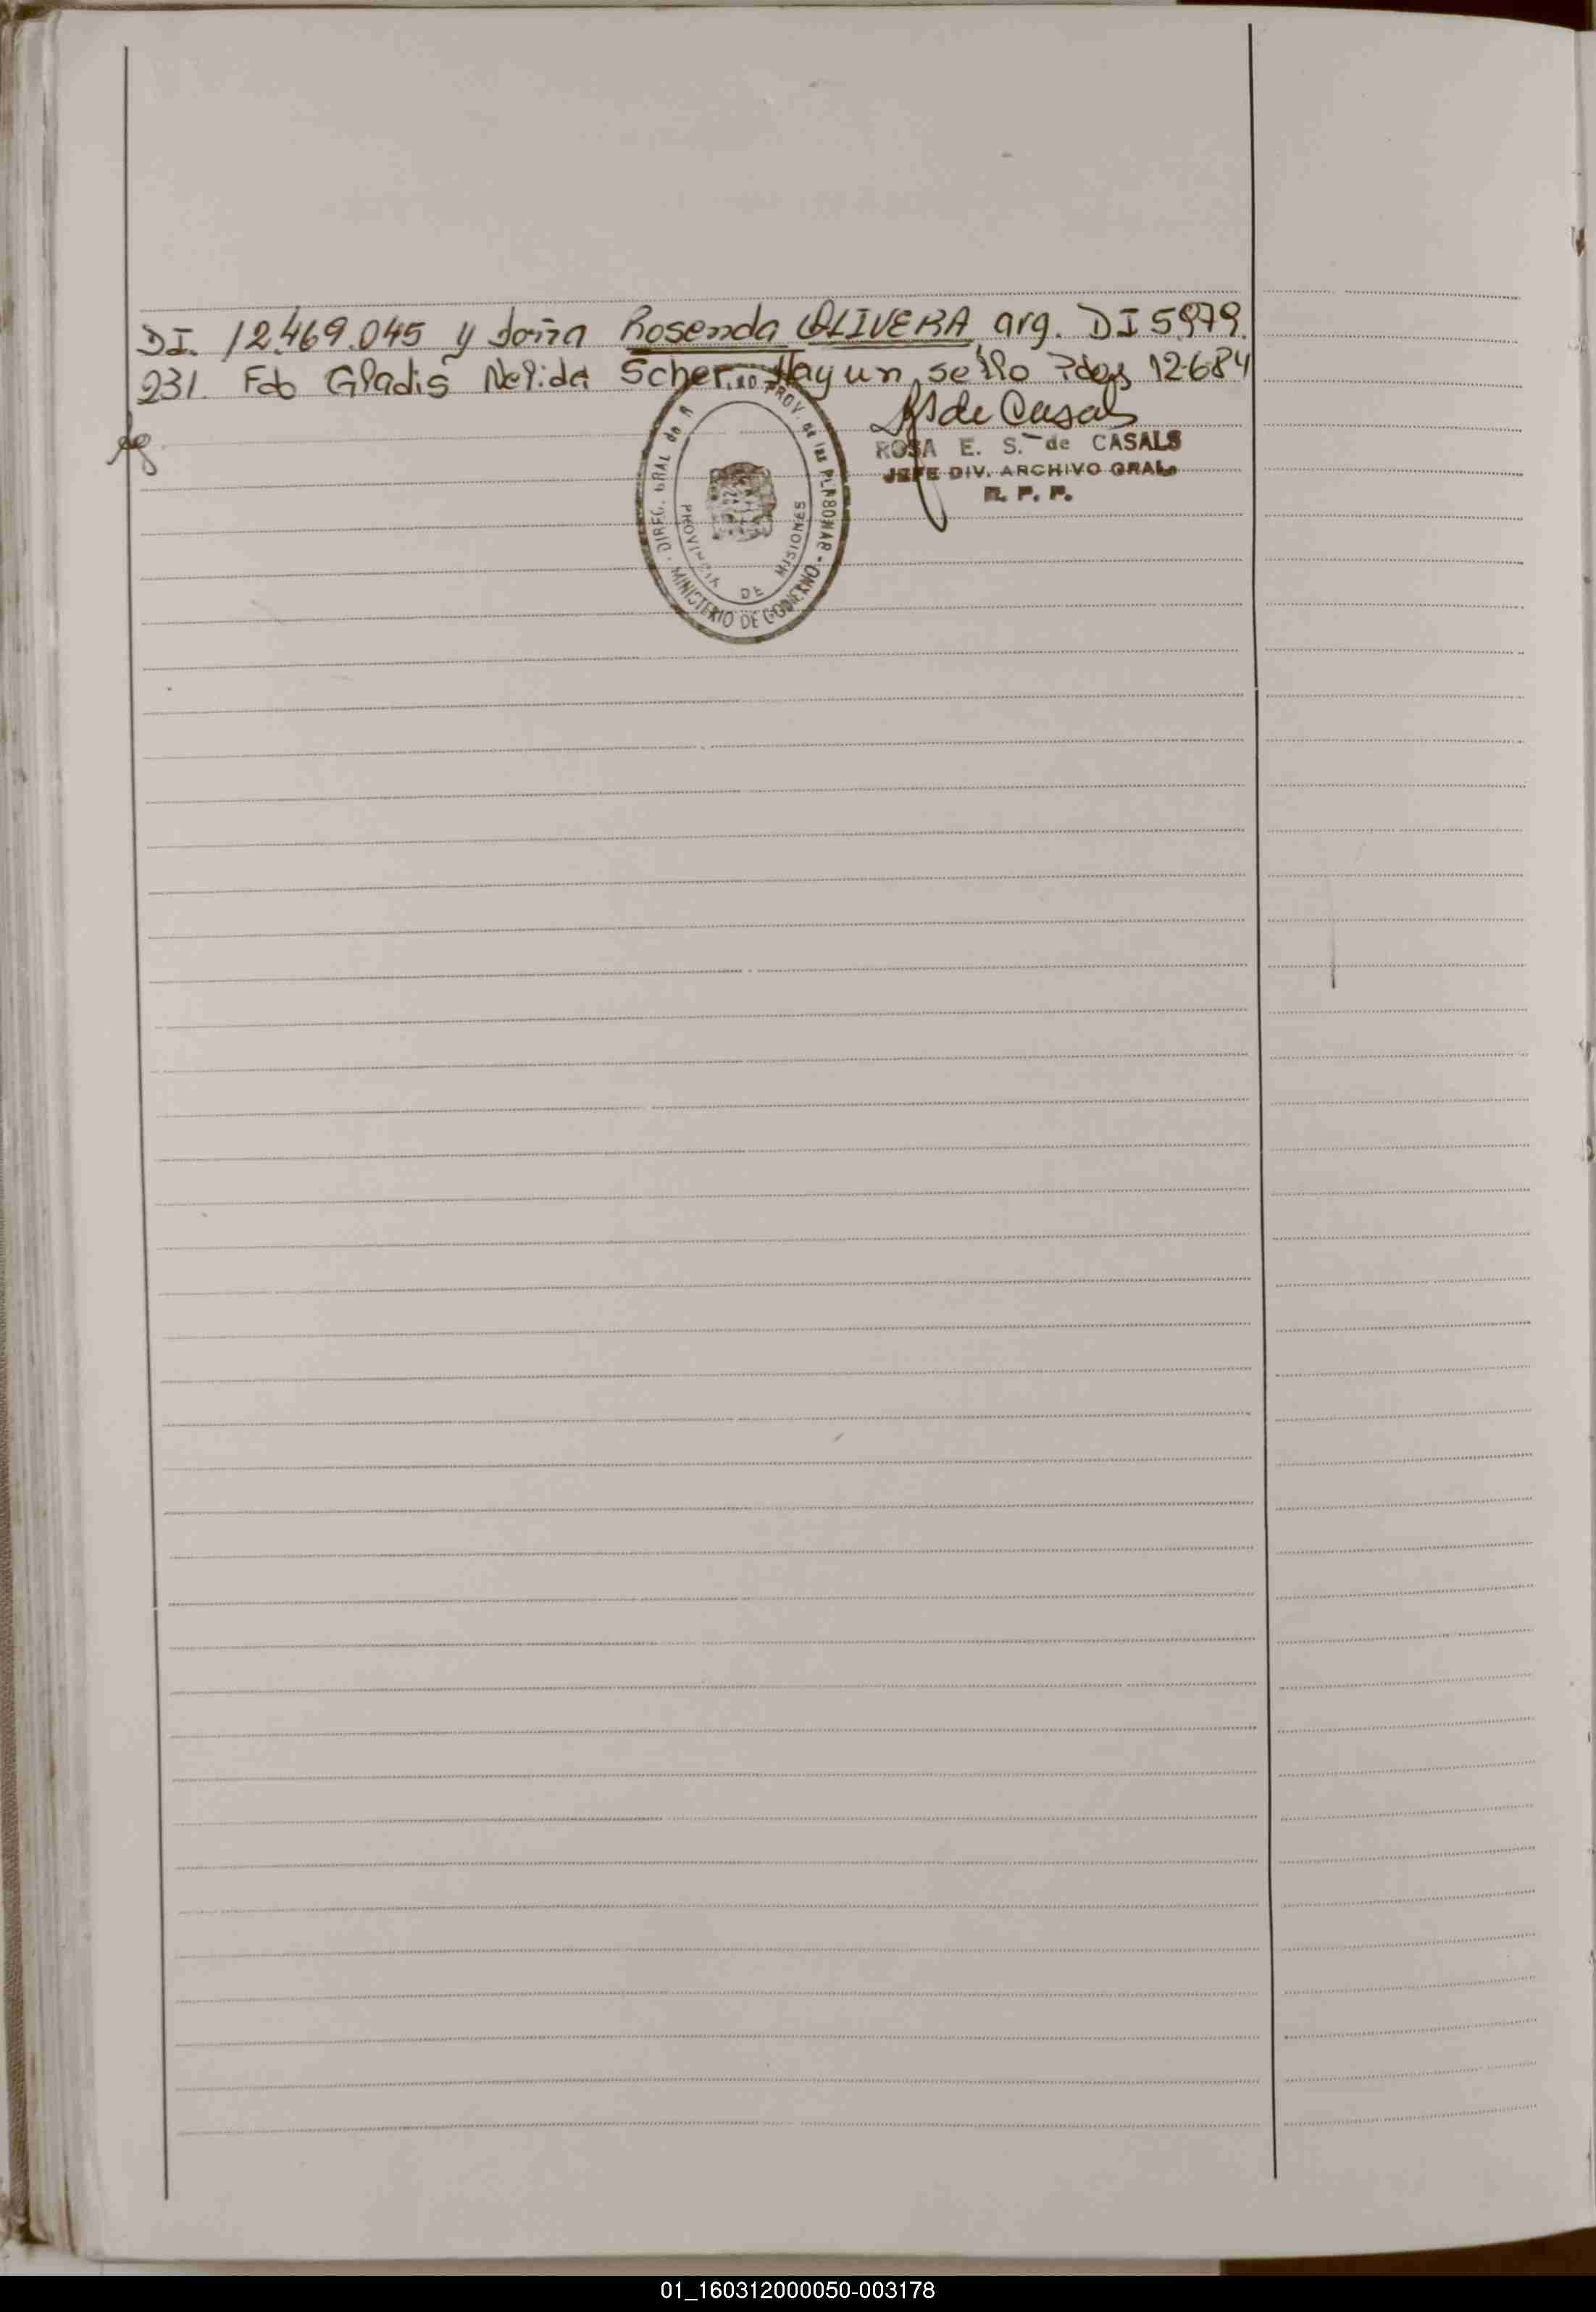 DI. 12.469.045 y doña Rosenda OLIVERA, arg. DI 5.979.
231. Fdo Gladis Nelida Scher. Hay un sello 12-684
de Casals
ROSA E. S. de CASALS
JEFE DIV. ARCHIVO GRAL.
R. P. P.
DIREC. GRAL de R PROV. de las PERSONAS
PROVINCIA DE MISIONES
MINISTERIO DE GOBIERNO
01_160312000050-003178